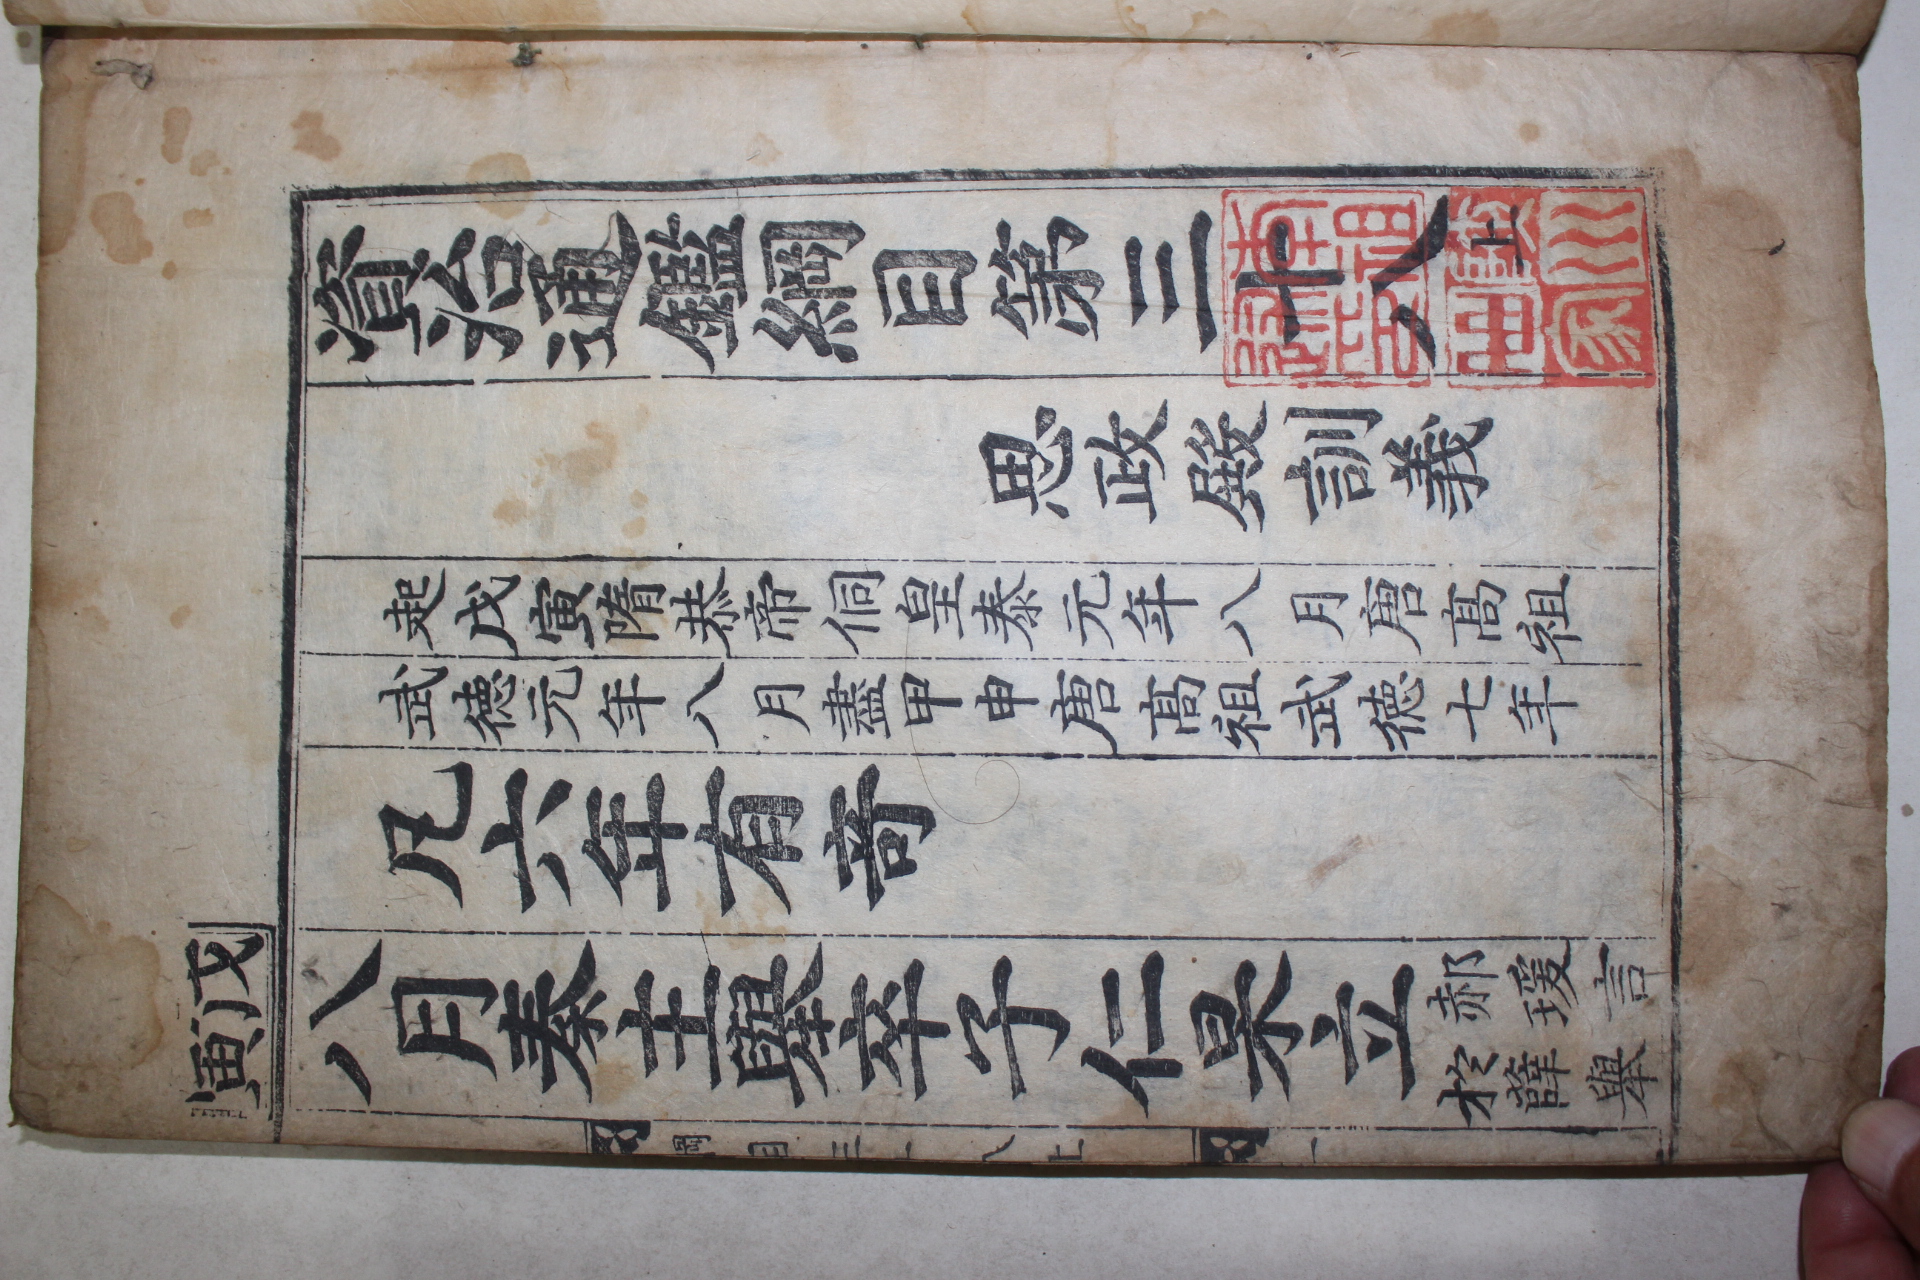 資治通鑑綱目第三十八上
思政殿訓義
起戊寅隋恭帝侗皇泰元年八月唐髙祖
武德元年八月盡甲申唐髙祖武德七年
凡六年有竒
戊寅
八月秦主舉卒子仁杲立
郝瑗言
於薛舉
綱目三十八上
一
南祖
陝川
世家